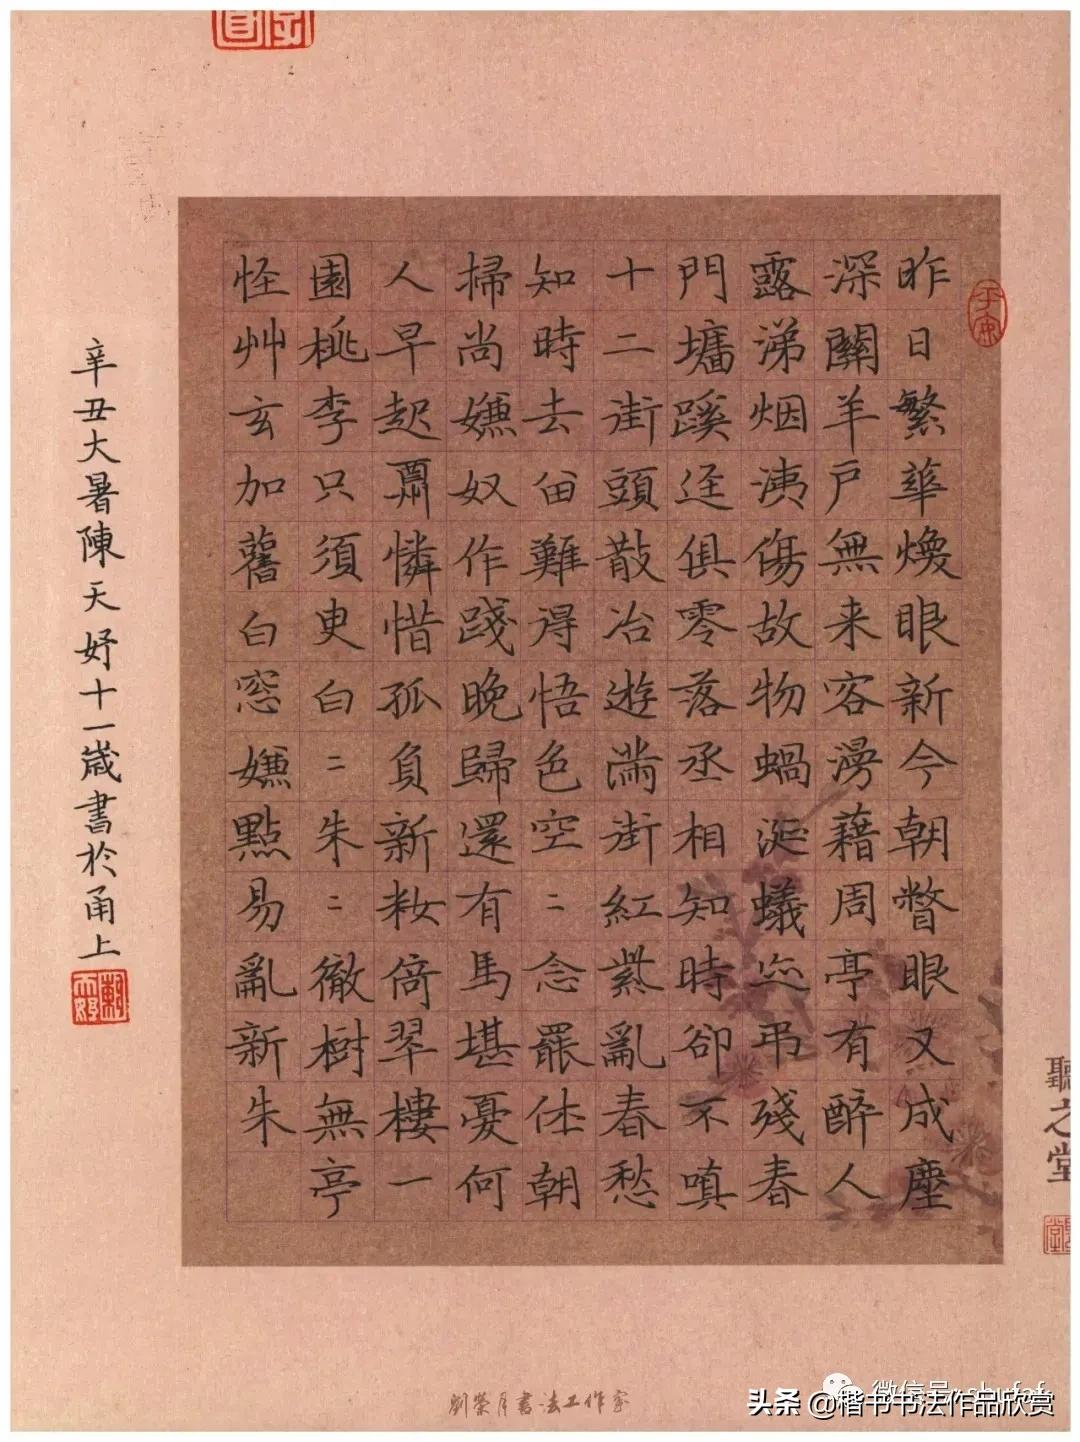 昨日繁華煥眼新今朝瞥眼又成塵
深關羊戶無来客漫藉周亭有醉人
露涕烟洟傷故物蝸涎蟻迹弔殘春
門墻蹊逕俱零落丞相知時卻不嗔
十二街頭散冶遊滿街紅紫亂春愁
知時去留難得悟色空二念罷休朝
掃尚嫌奴作踐晚歸還有馬堪憂何
人早起肅憐惜孤負新粧倚翠樓一
園桃李只須更白二朱二徹樹無亭
怪艸玄加舊白窓嫌點易亂新朱
辛丑大暑陳天妤十一歲書於甬上
聽之堂
劉榮月書法工作室
头条 @楷书书法作品欣赏